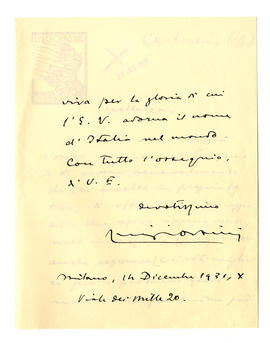 viva per la gloria di cui
l'E. V. adorna il nome
d'Italia nel mondo.
Con tutto l'ossequio,
d'V. E.
devotissimo
Milano, 14 Dicembre 1931, X
Viale dei Mille 20.